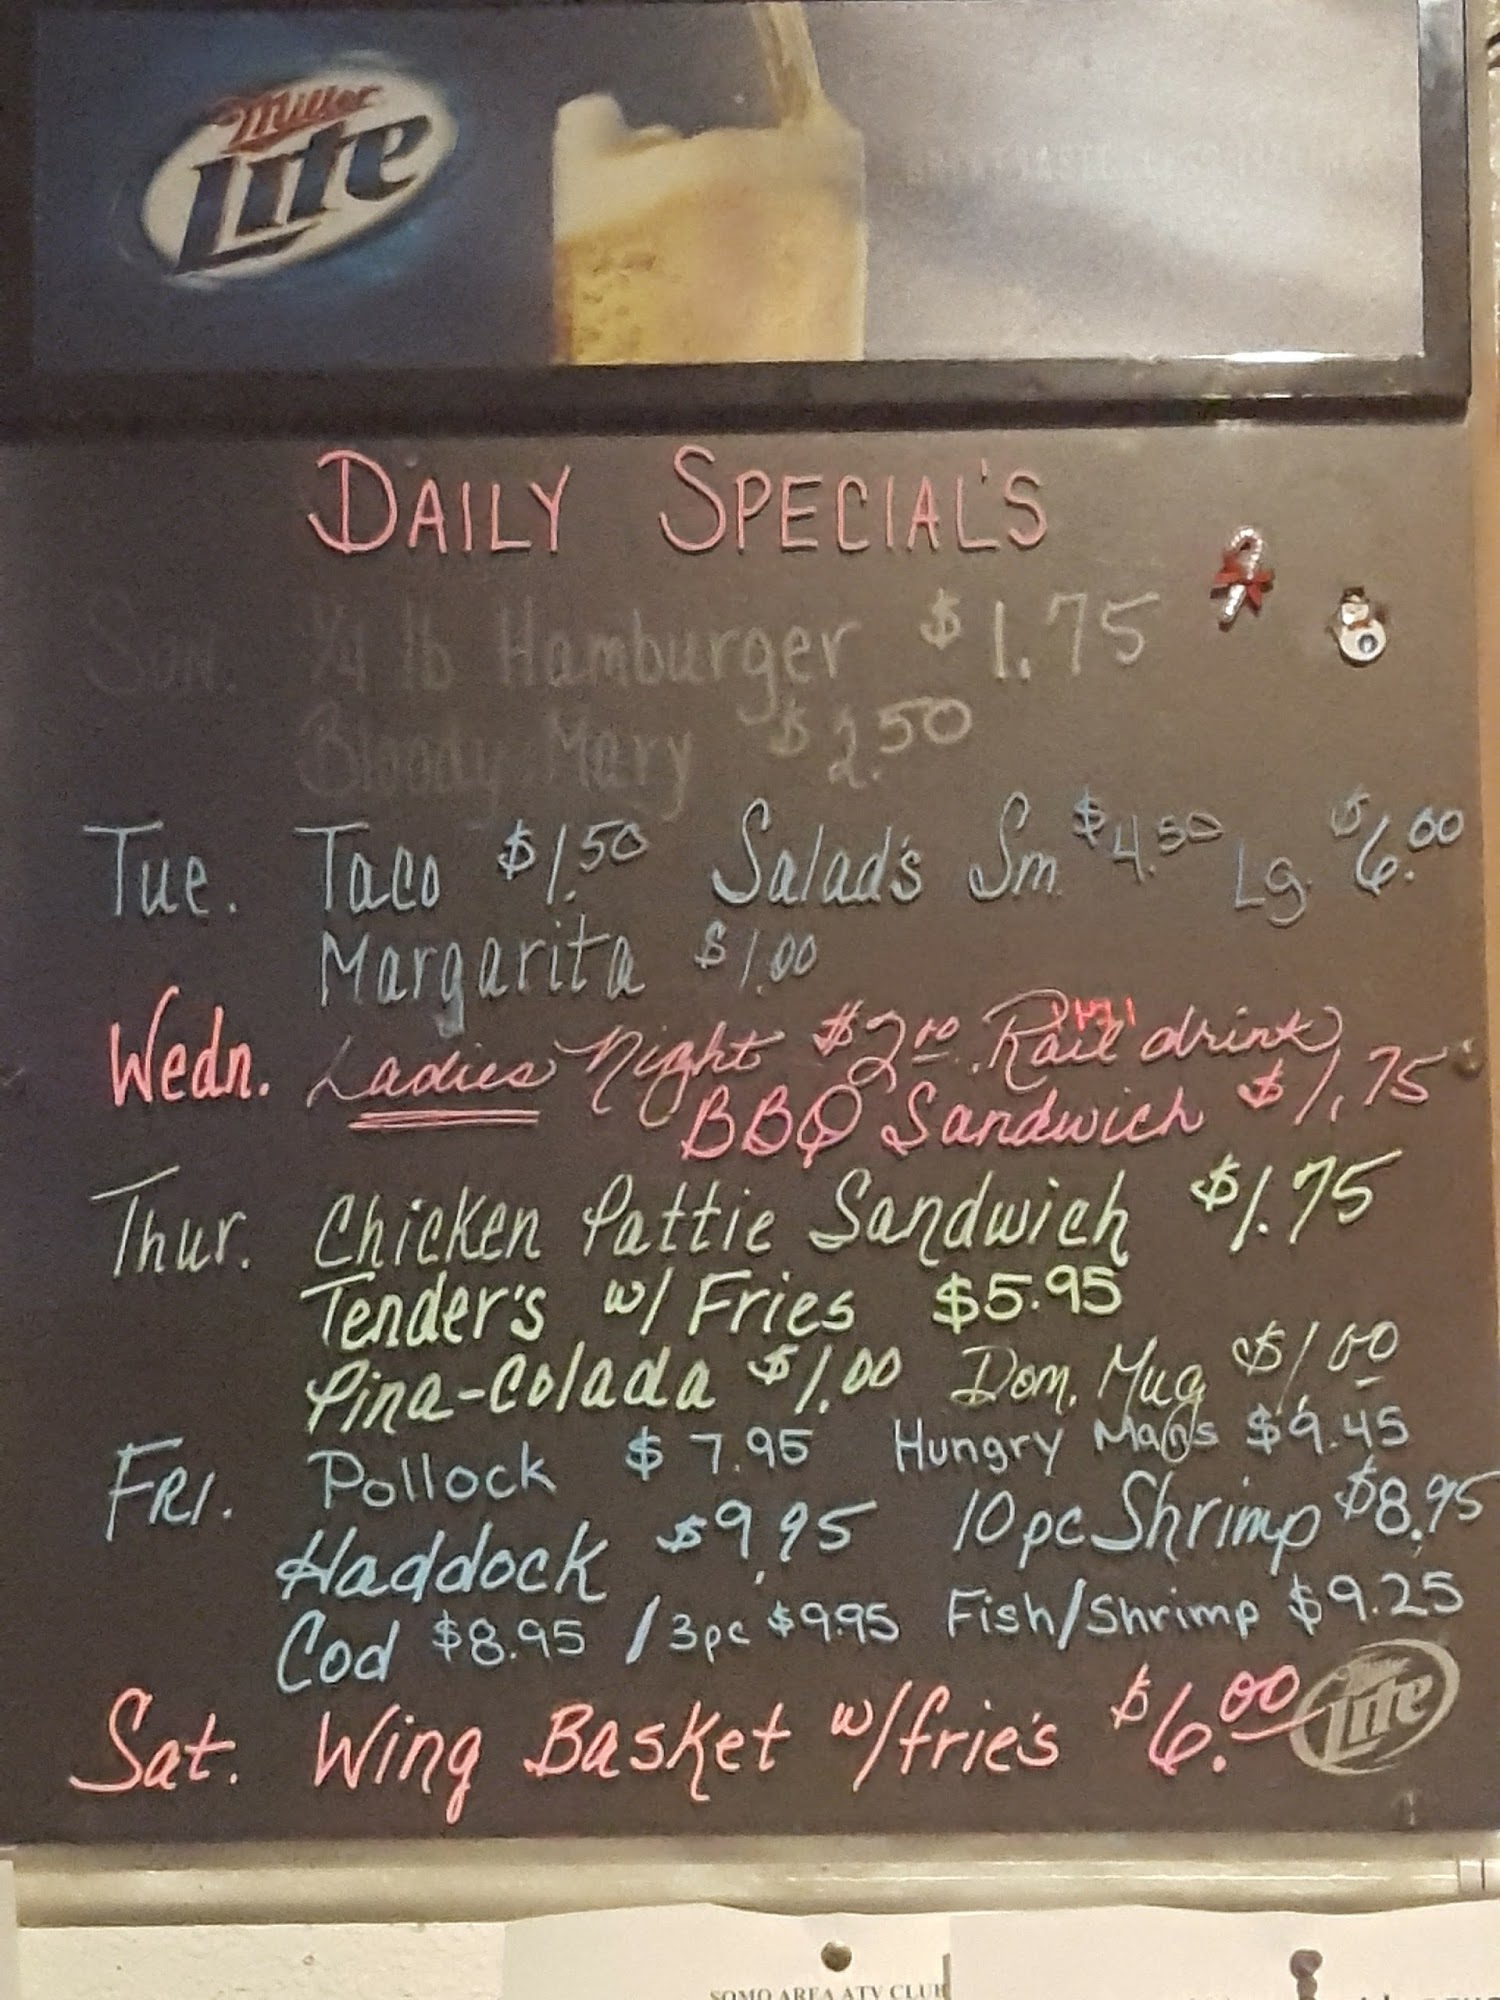 Miller
Lite
DAILY SPECIAL'S
Sun. 1/4 lb Hamburger $1.75
Bloody Mary $2.50
Tue. Taco $1.50 Salad's Sm. $4.50 Lg. $6.00
Margarita $1.00
Wedn. Ladies Night $2.00 Rail drink
BBQ Sandwich $1.75
Thur. Chicken Pattie Sandwich $1.75
Tender's w/ Fries $5.95
Pina-Colada $1.00 Dom. Mug $1.00
FRI. Pollock $7.95 Hungry Man's $9.45
Haddock $9.95 10pc Shrimp $8.95
Cod $8.95 / 3pc $9.95 Fish/Shrimp $9.25
Sat. Wing Basket w/frie's $6.00
Miller
Lite
SOMO AREA ATV CLUB